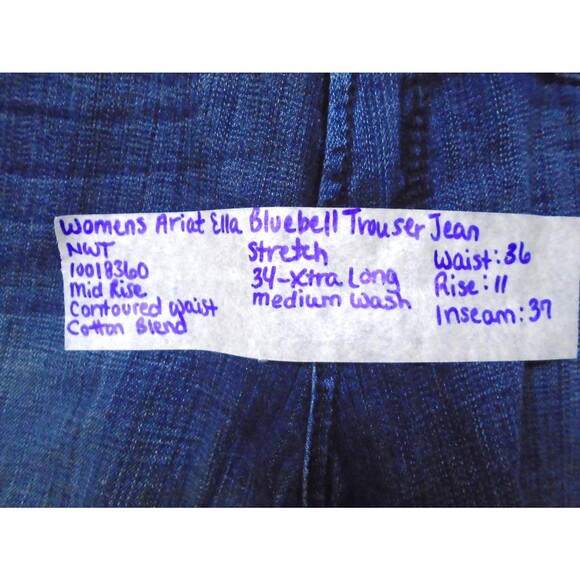 Womens Ariat Ella Bluebell Trouser Jean
NWT
10018360
Mid Rise
Contoured Waist
Cotton Blend
Stretch
34-Xtra Long
medium Wash
Waist: 36
Rise: 11
Inseam: 37